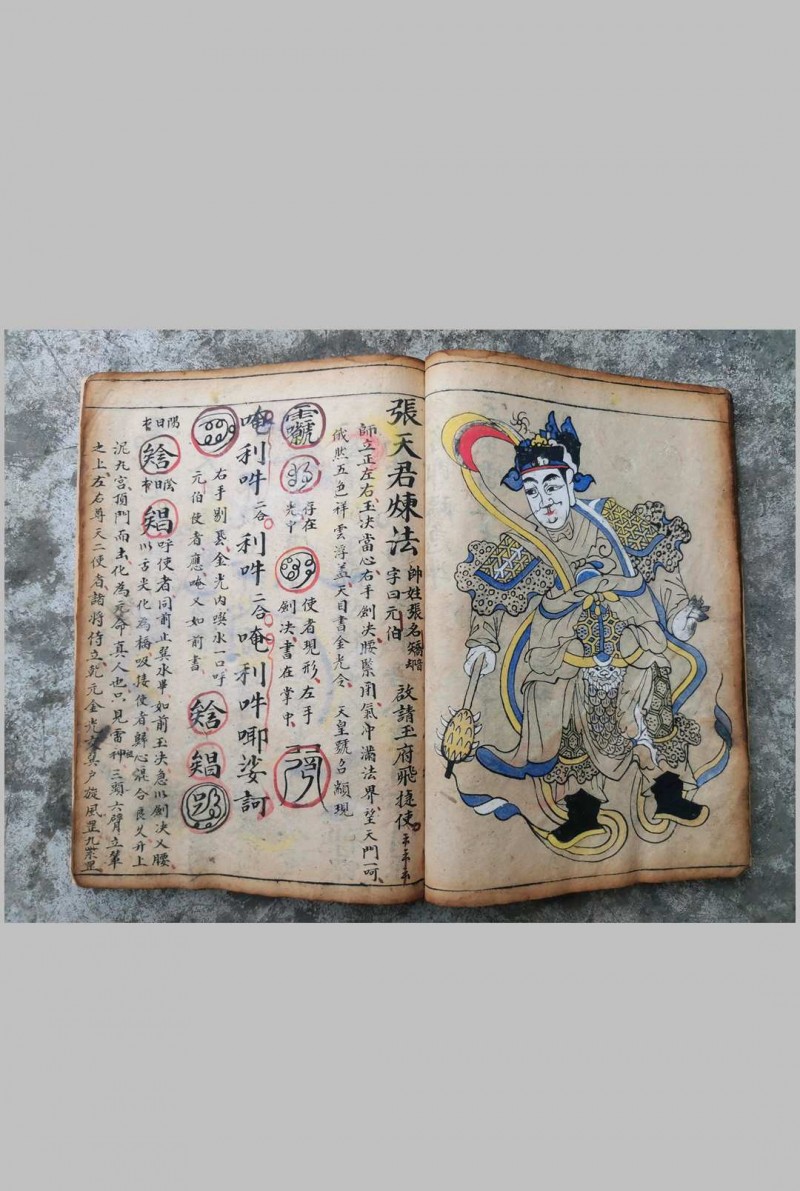 張天君煉法
師姓張名
字曰元伯
啟請玉府飛捷使
師立正左右玉決當心右手劍決腰緊用氣冲滿法界望天門一呵
俄然五色祥雲浮蓋天目書金光令 天皇號召 顯現
存在
光中
使者現形左手
劍決書在掌中
唵利吽二合利吽二合唵利吽唧娑訶
右手剔表金光內噀水一口呼
元伯使者應唵又如前書
陽日
陰日
呼使者同前止巽水畢如前玉決急以劍決又腰
以舌尖化為橋吸接使者觧心讓合良久升上
泥九宮頂門而出化為元命真人也只見雷神三頭六臂立華
之上左右尊天二使者諸將侍立乾元金光巽戶旋風罡九炁罡